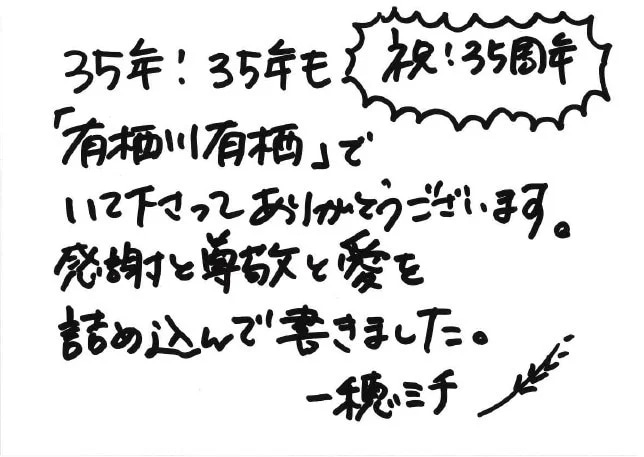 35年!35年も
祝!35周年
「有栖川有栖」で
いて下さってありがとうございます。
感謝と尊敬と愛を
詰め込んで書きました。
一穂ミチ